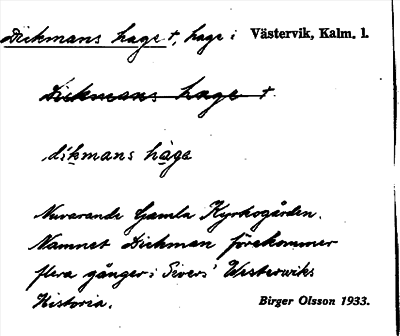 Dickmans hage †, hage i Västervik, Kalm. l.
Dickmans hage †
dikmans hage
Nuvarande Gamla Kyrkogården.
Namnet Dickman förekommer
flera gånger i Sivers' Westerwiks
Historia.
Birger Olsson 1933.